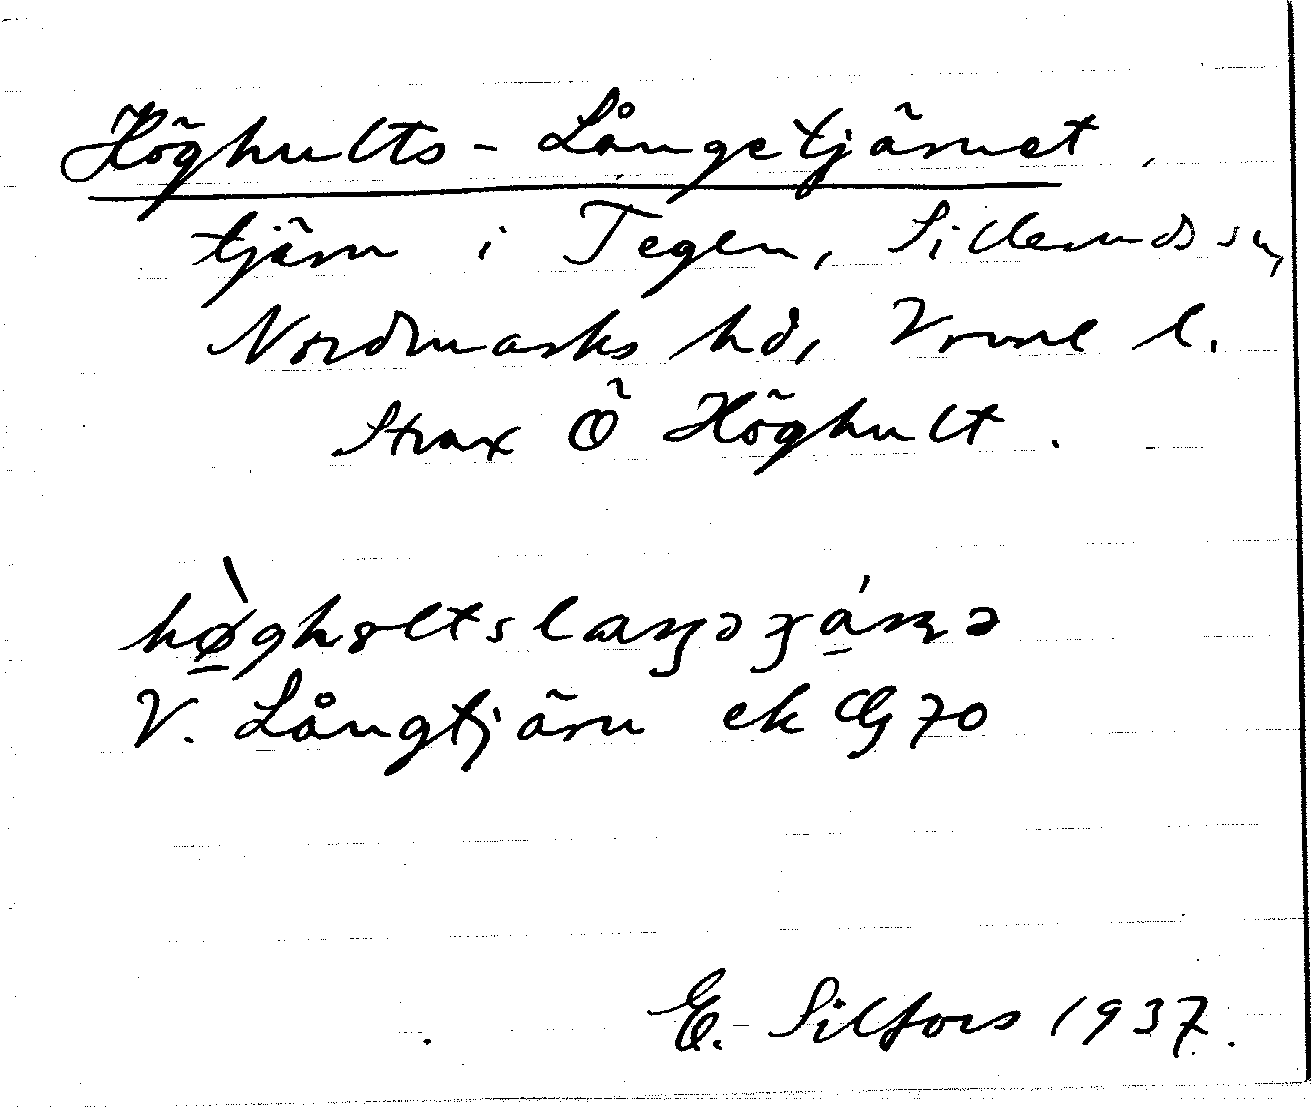 Höghults-Långetjärnet,
tjärn i Tegen, Silleruds sn,
Nordmarks hd, Vrml l.
Strax Ö Höghult.
V. Långtjärn ek
E. Silfors 1937.